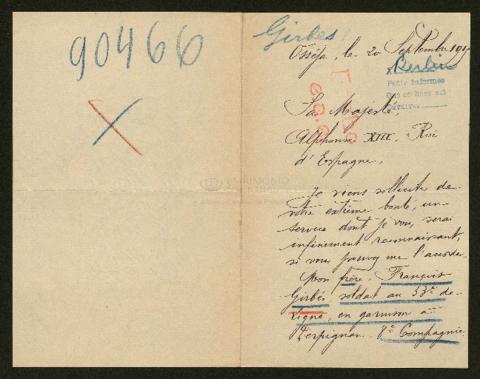 90466
Girbés
le 20 Septembre
Berlin
Sa Majesté,
Alphonse XIII. Roi
d'Espagne,
Je viens solliciter de
votre extrême bonté, un
service dont je vous serai
infiniment reconnaissant,
si vous pouvez me l'accorder.
Mon frère, François
Girbés soldat au 53e de
ligne, en garnison à
Perpignan. 7e Compagnie